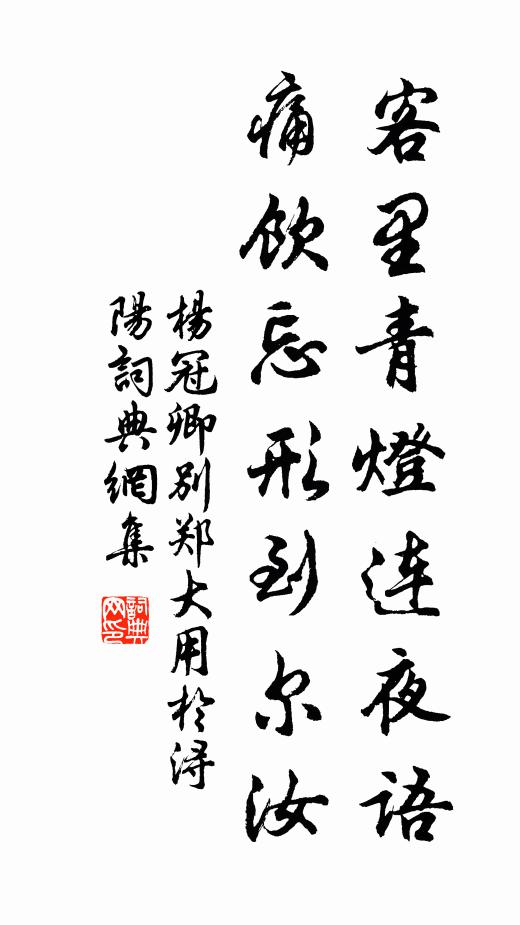 客里青燈連夜语
痛飲忘形到尔汝
楊冠卿别郑大用於浔
陽詞典網集
詞典
网印